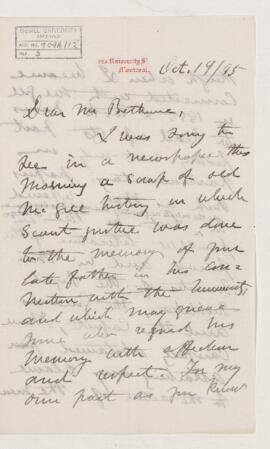 McGILL UNIVERSITY
ARCHIVES
ACC. NO. 909A/12
REF. 3
University St
Montreal.
Oct. 19/95
Dear Mr Bethune,
I was sorry to
see in a newspaper this
morning a scrap of old
McGill history in which
scant justice was done
to the memory of your
late father in his con-
nection with the University,
and which may grieve
some who regard his
memory with affection
and respect. For my
own part as you know